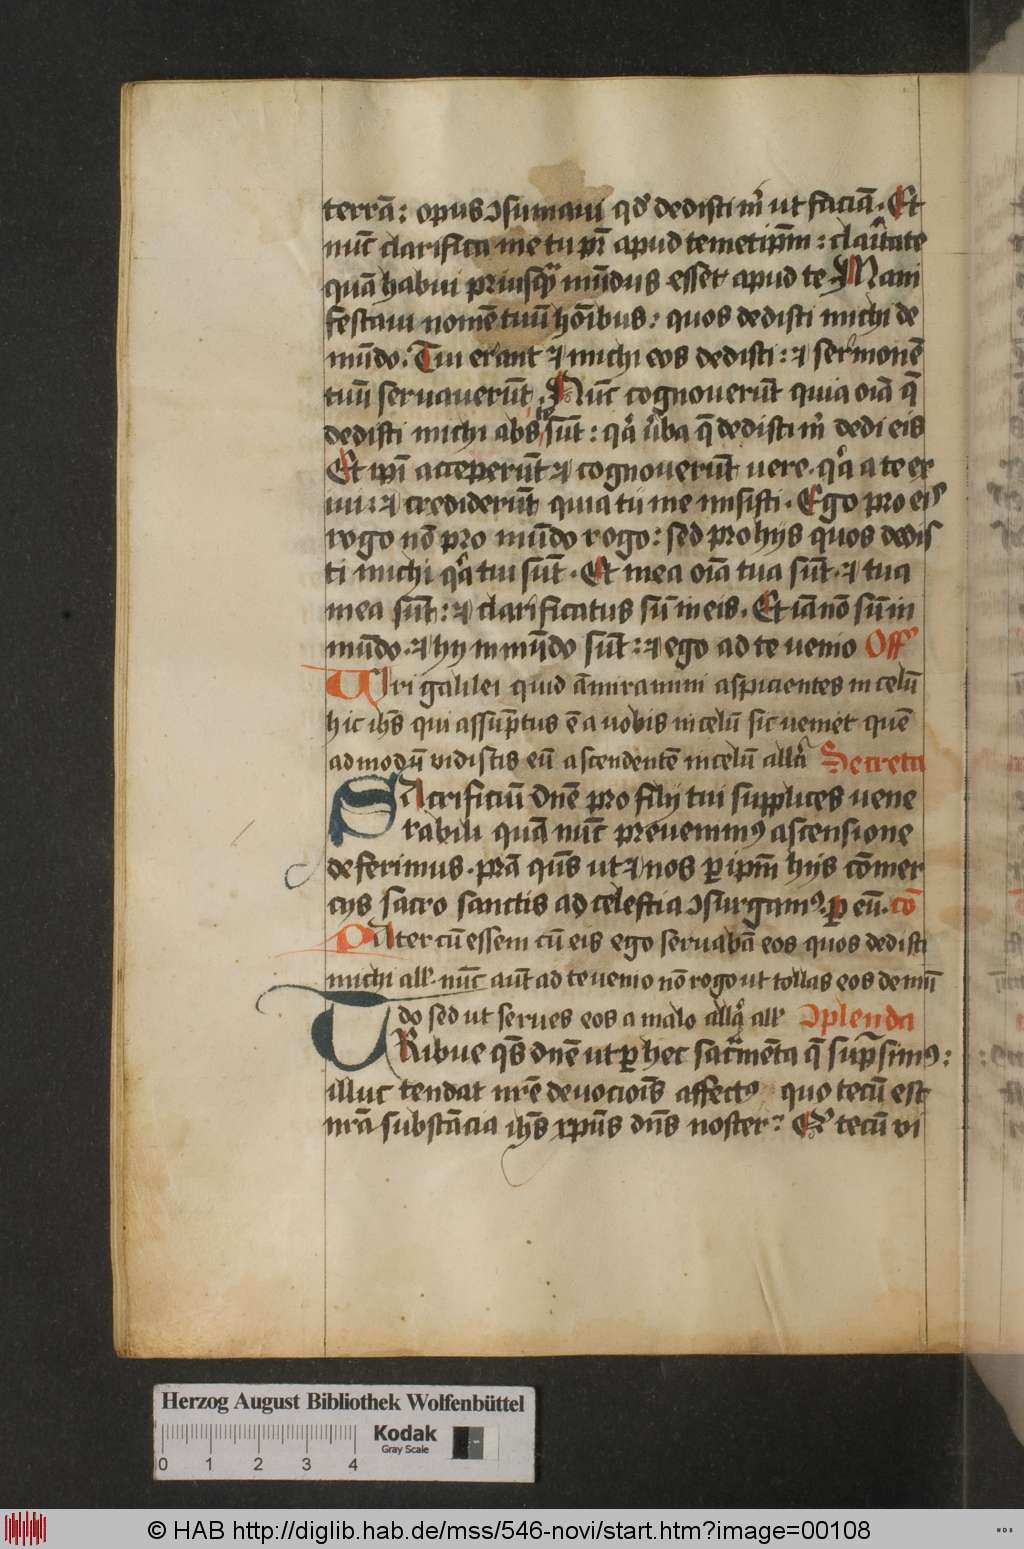 terrā: opus ↄsumaui qd' dedisti m' ut faciā. Et
nūc clarifica me tu pr̄ apud temetip̄m: claritate
quā habui priusq̄ mūdus esset apud te Mani
festaui nomē tuū hōibus: quos dedisti michi de
mūdo. Tui erant ⁊ michi eos dedisti: ⁊ sermonē
tuū seruauerūt. Nūc cognouerūt quia oīa q̄
dedisti michi abs te sūt: qͣ uͬba q̄ dedisti m' dedi eis
Et ip̄i acceperūt ⁊ cognouerūt uere. qͣ a te ex
iui: ⁊ crediderūt quia tu me misisti. Ego pro eis
rogo nō pro mūdo rogo: sed pro hijs quos dedis
ti michi qͣ tui sūt. Et mea oīa tua sūt. ⁊ tua
mea sūt: ⁊ clarificatus sū in eis. Et iā nō sū in
mūdo. ⁊ hij in mūdo sūt: ⁊ ego ad te uenio Off'
Uiri galilei quid amiramini aspicientes in celū
hic ih̄s qui assūptus ē a uobis in celū sic ueniet quē
ad modū vidistis eū ascendentē in celū allͣ Secreta
SAcrificiū dn̄e pro filij tui supplices uene
rabili quā nūc preuenimꝰ ascensione
deferimus. pr̄a qūs ut ⁊ nos ꝑ ipm̄ hijs cōmer
cijs sacro sanctis ad celestia ↄsurgamꝰ. ꝑ eū. cō
PAter cū essem cū eis ego seruabā eos quos dedisti
michi all'. nūc aūt ad te uenio nō rogo ut tollas eos de mū
do sed ut serues eos a malo allͣ all' ↄplenda
TRibue qs̄ dn̄e ut ꝑ hec sacͬmēta q̄ sūpsimꝰ:
illuc tendat nr̄e deuociōis affectꝰ quo tecū est
nr̄a substācia ih̄s xp̄us dn̄s noster: Qͥ tecū vi
Herzog August Bibliothek Wolfenbüttel
Kodak
Gray Scale
0 1 2 3 4
© HAB http://diglib.hab.de/mss/546-novi/start.htm?image=00108